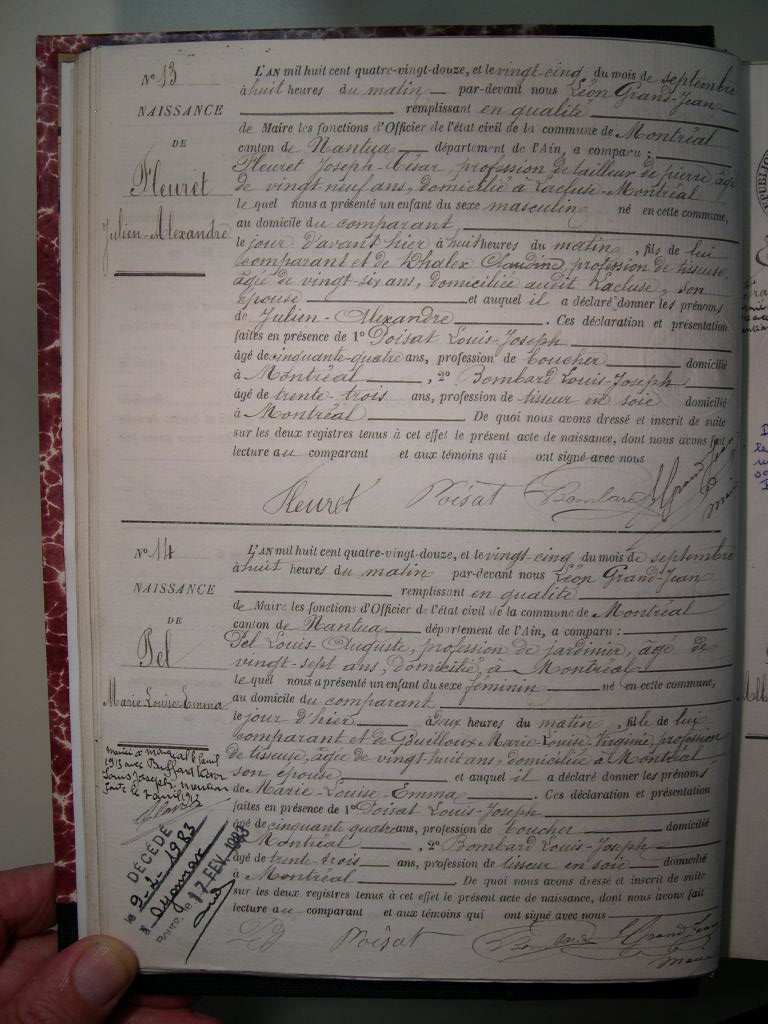 N° 13
NAISSANCE
DE
Fleuret
Julien-Alexandre
L'AN mil huit cent quatre-vingt-douze, et le vingt-cinq du mois de septembre
à huit heures du matin par-devant nous Léon Grand-Jean
remplissant en qualité
de Maire les fonctions d'Officier de l'état civil de la commune de Montréal
canton de Nantua département de l'Ain, a comparu :
Fleuret Joseph-César, profession de tailleur de pierre, âgé
de vingt neuf ans, domicilié à Lacluse-Montréal
le quel nous a présenté un enfant du sexe masculin né en cette commune,
au domicile du comparant
le jour d'avant hier à huit heures du matin, fils de lui
comparant et de Claudine, profession de tisseuse
âgée de vingt-six ans, domiciliée audit Lacluse, son
épouse et auquel il a déclaré donner les prénoms
de Julien-Alexandre. Ces déclaration et présentation
faites en présence de 1° Poisat Louis-Joseph
âgé de cinquante-quatre ans, profession de boucher domicilié
à Montréal, 2° Bombard Louis-Joseph
âgé de trente-trois ans, profession de tisseur en soie domicilié
à Montréal De quoi nous avons dressé et inscrit de suite
sur les deux registres tenus à cet effet le présent acte de naissance, dont nous avons fait
lecture au comparant et aux témoins qui ont signé avec nous
Fleuret Poisat Bombard L Grand Jean
maire
N° 14
NAISSANCE
DE
Pel
Marie Louise Emma
L'AN mil huit cent quatre-vingt-douze, et le vingt-cinq du mois de septembre
à huit heures du matin par-devant nous Léon Grand-Jean
remplissant en qualité
de Maire les fonctions d'Officier de l'état civil de la commune de Montréal
canton de Nantua département de l'Ain, a comparu :
Pel Louis Auguste, profession de jardinier, âgé de
vingt-sept ans, domicilié à Montréal
le quel nous a présenté un enfant du sexe féminin né en cette commune,
au domicile du comparant
le jour d'hier à deux heures du matin, fille de lui
comparant et de Guilloux Marie Louise Virginie, profession
de tisseuse, âgée de vingt huit ans, domiciliée à Montréal
son épouse et auquel il a déclaré donner les prénoms
de Marie-Louise-Emma. Ces déclaration et présentation
faites en présence de 1° Poisat Louis-Joseph
âgé de cinquante quatre ans, profession de boucher domicilié
à Montréal, 2° Bombard Louis-Joseph
âgé de trente-trois ans, profession de tisseur en soie domicilié
à Montréal De quoi nous avons dressé et inscrit de suite
sur les deux registres tenus à cet effet le présent acte de naissance, dont nous avons fait
lecture au comparant et aux témoins qui ont signé avec nous
Poisat L Grand Jean
maire
1913 avec Buffard
Louis Joseph, mention
faite le 7 avril 1913
DÉCÉDÉ
le 9.2.1983
à Oyonnax
17 FEV. 1983